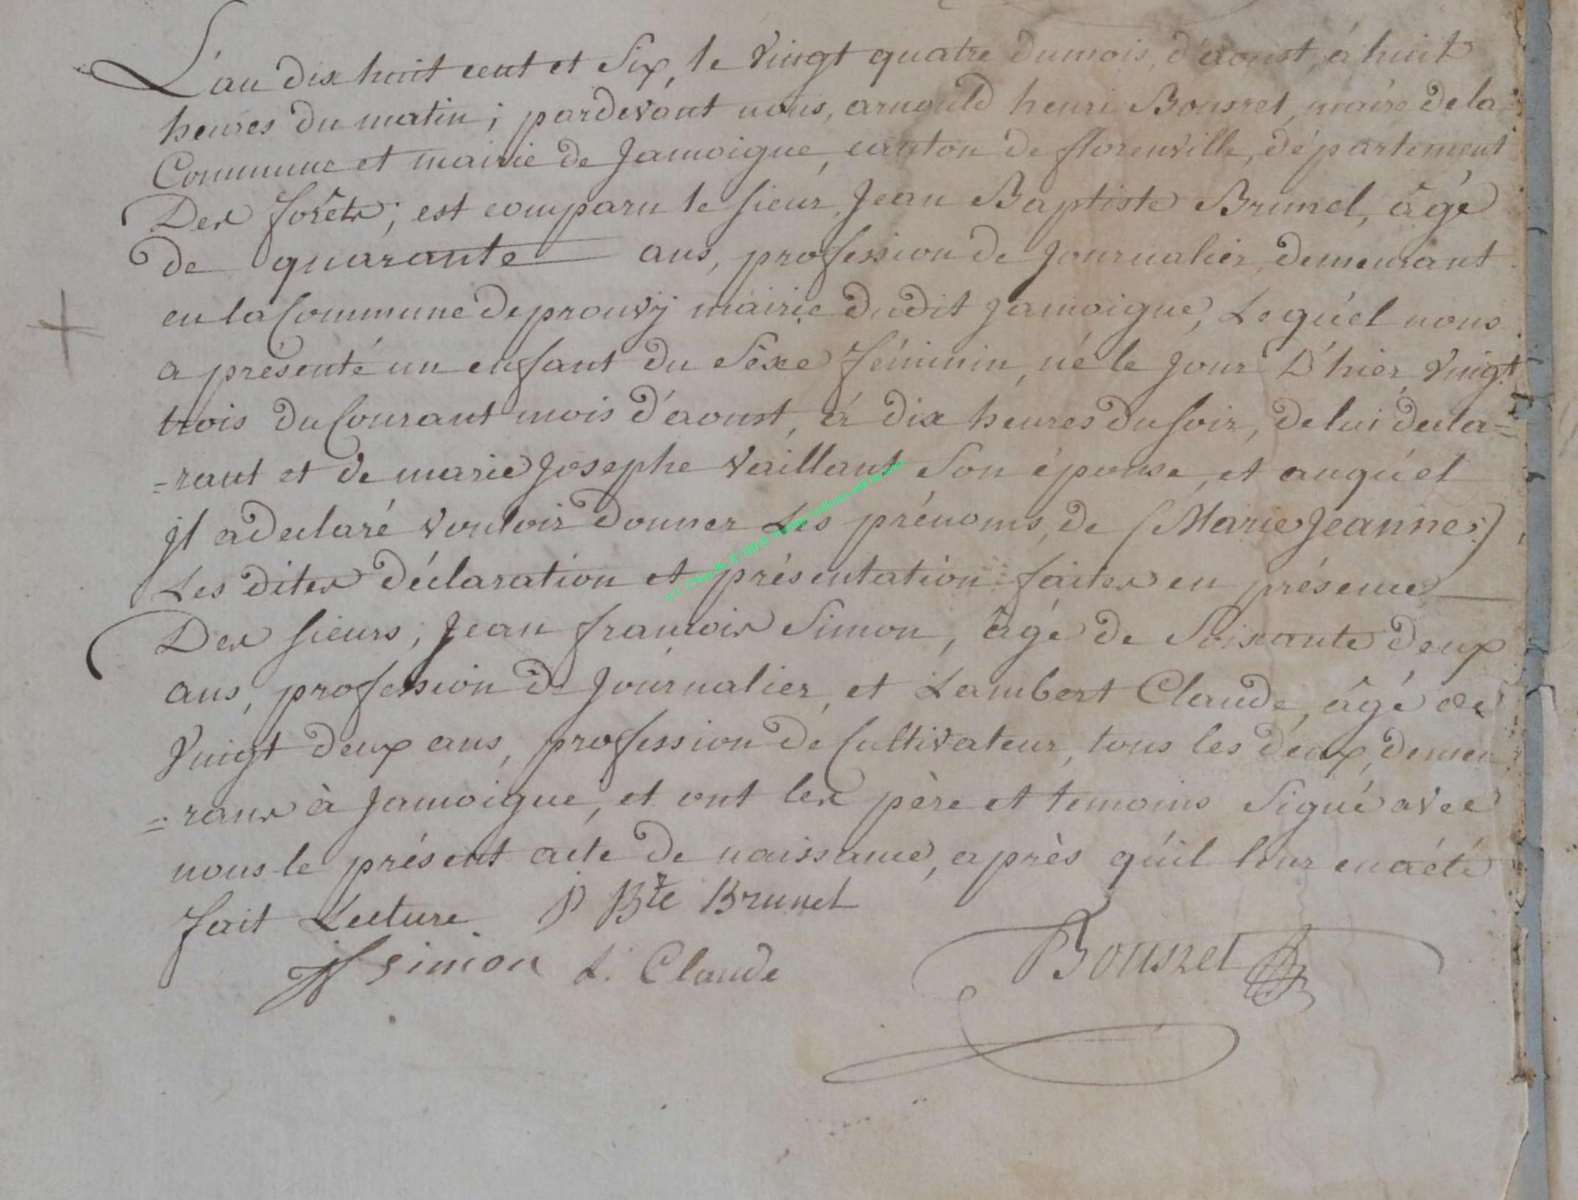 L'an dix huit cent et Six, le Vingt quatre du mois, d'aoust, à huit
heures du matin; pardevant nous, arnould henri Bousret, maire de la
Commune et mairie de Jamoigne, canton de florenville, département
Des forêts; est comparu le sieur, Jean Baptiste Brunel, âgé
de quarante ans, profession de Journalier, demeurant
en la Commune de prouvÿ mairie dudit Jamoigne, Lequel nous
a présenté un enfant du Sexe féminin, né le jour D'hier Vingt
trois du Courant mois d'aoust, à dix heures du soir, de lui décla=
=rant et de marie Josephe Vaillant Son épouse, et auquel
jl a declaré vouloir donner Les prénoms, de (Marie Jeanne:)
Les dites déclaration et présentation faites en présence
Des sieurs, Jean francois Simon, âgé de Soixante deux
ans, profession de Journalier, et Lambert Claude, âgé de
Vingt deux ans, profession de Cultivateur, tous les deux, demeu
=rans à Jamoigne, et ont les père et temoins Signé avec
nous le présent acte de naissance, après qu'il leur en a été
fait Lecture. J Bte Brunel
jf simon L. Claude Bousret